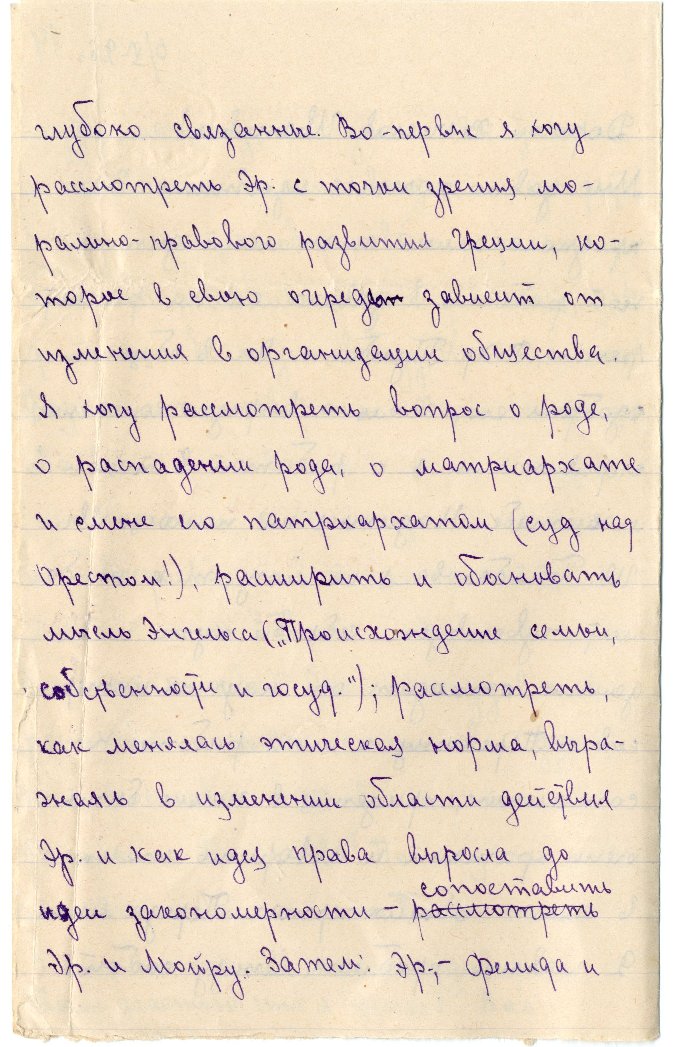 глубоко связанные. Во-первые я хочу
рассмотреть Эр. с точки зрения мо-
рально-правового развития Греции, ко-
торое в свою очередь зависит от
изменения в организации общества.
Я хочу рассмотреть вопрос о роде,
о распадении рода, о матриархате
и смене его патриархатом (суд над
Орестом!), расширить и обосновать
мысль Энгельса („Происхождение семьи,
собственности и госуд."); рассмотреть,
как менялась этическая норма, выра-
жаясь в изменении области действия
Эр. и как идея права выросла до
идеи закономерности – сопоставить ~~рассмотреть~~
Эр. и Мойру. Затем: Эр.,– Фемида и